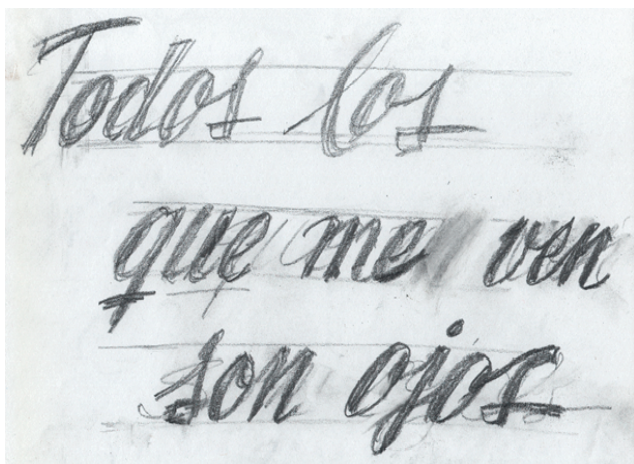 Todos los
que me ven
son ojos